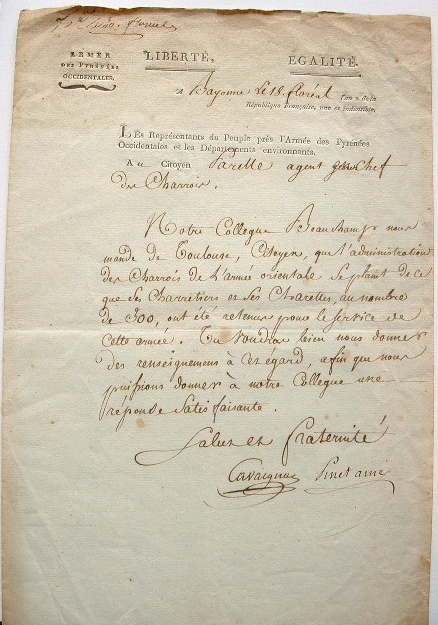 floreal
ARMÉE
DES PYRÉNÉES
OCCIDENTALES.
LIBERTÉ, ÉGALITÉ.
A Bayonne Le 18. floréal l'an 2 de la
République Française, une et indivisible.
LEs Représentants du Peuple près l'Armée des Pyrénées
Occidentales et les Départements environnants,
Au Citoyen agent chef
des Charrois.
Notre Collegue Beauchamp nous
mande de Toulouse, Citoyen, que l'administration
des Charrois de L'armée orientale se plaint de ce
que ses Charretiers et ses Charettes, au nombre
de 300, ont été retenus pour le service de
Cette armée. Tu voudras bien nous donner
des renseignemens à cet égard, afin que nous
puissions donner à notre Collegue une
réponse satisfaisante.
Salut et fraternité
Cavaignac Pinet ainé